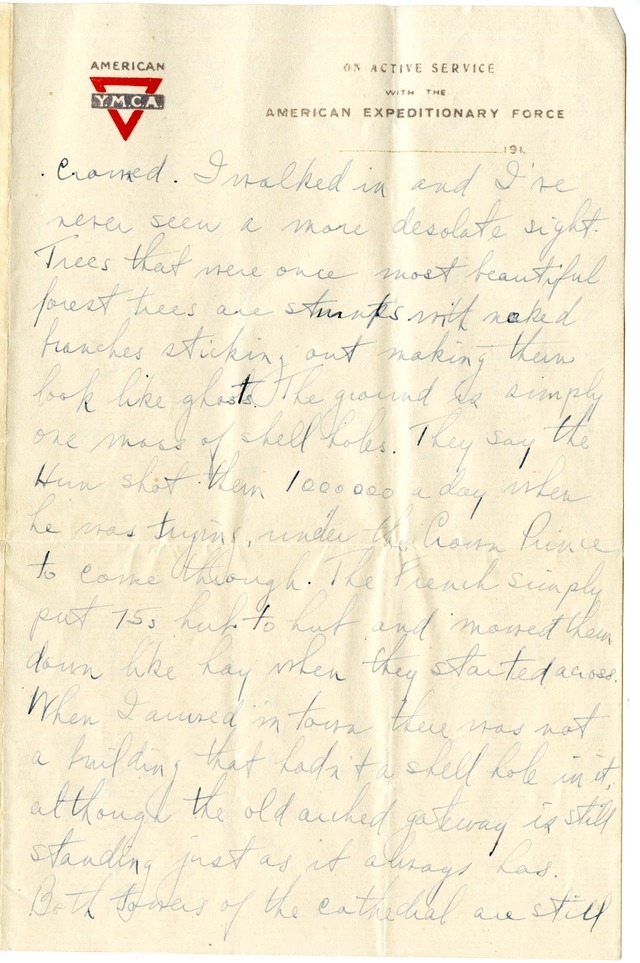 AMERICAN
Y.M.C.A.
ON ACTIVE SERVICE
WITH THE
AMERICAN EXPEDITIONARY FORCE
191
I walked in and I've
never seen a more desolate sight.
Trees that were once most beautiful
forest trees are stumps with naked
branches sticking out making them
look like ghosts. The ground is simply
one mass of shell holes. They say the
Hun shot them 1000000 a day when
he was trying, under the Crown Prince
to come through. The French simply
put 75s hub to hub and mowed them
down like hay when they started across.
When I arrived in town there was not
a building that hadn't a shell hole in it,
although the old arched gateway is still
standing just as it always has.
Both towers of the cathedral are still